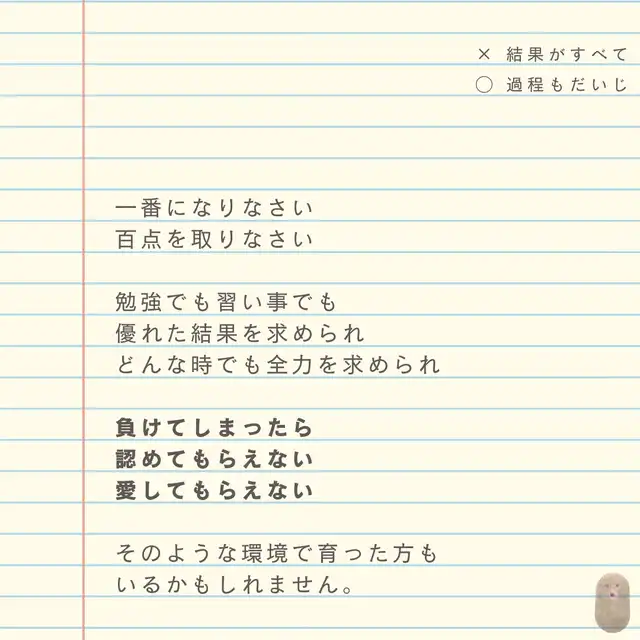 × 結果がすべて
○ 過程もだいじ
一番になりなさい
百点を取りなさい
勉強でも習い事でも
優れた結果を求められ
どんな時でも全力を求められ
負けてしまったら
認めてもらえない
愛してもらえない
そのような環境で育った方も
いるかもしれません。